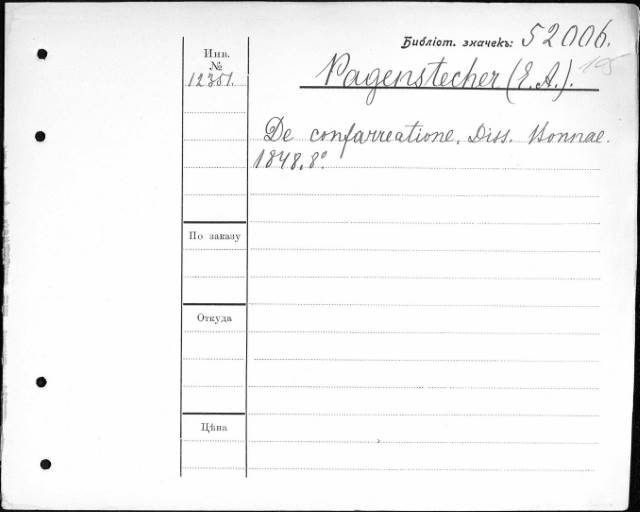 Библіот. значекъ: 52006.
Инв.
№
12351.
Pagenstecher (E. A.). 105
De confarreatione. Diss. Bonnae.
1848. 8º
По заказу
Откуда
Цѣна